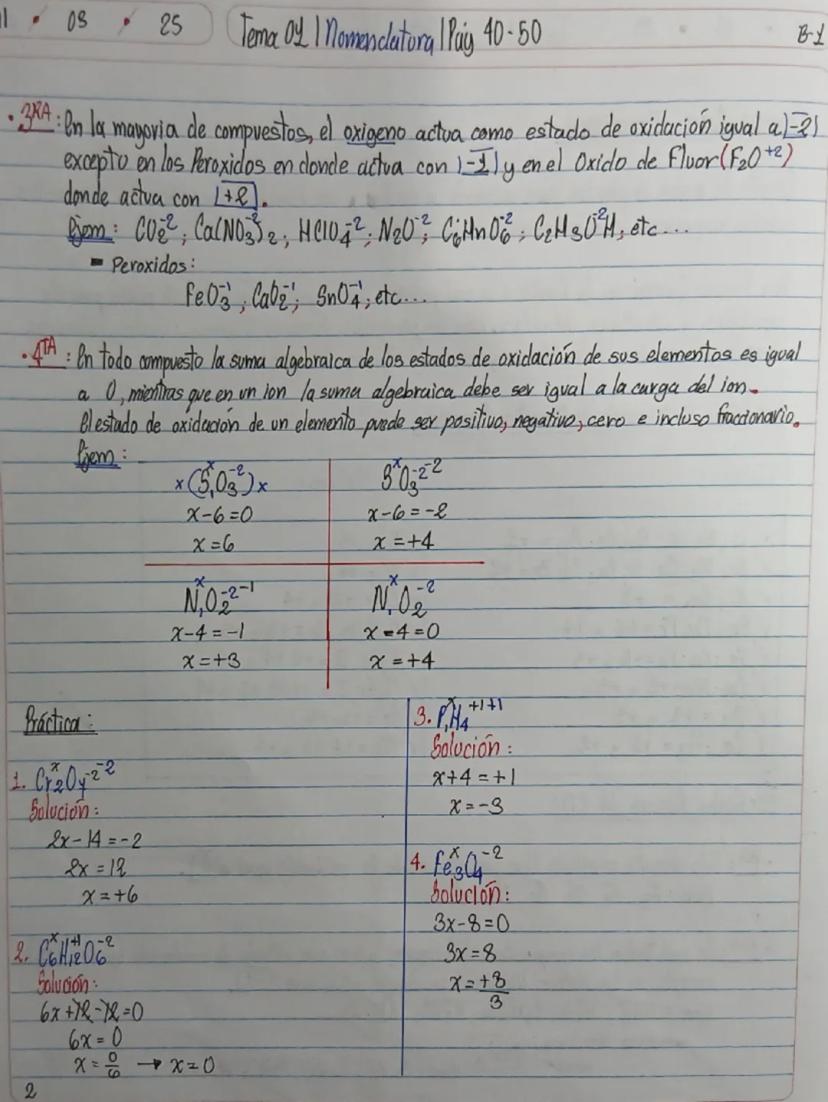 11 • 08 • 25 Tema 01 | Nomenclatura | Pág 40-50 B-1
• 3RA: En la mayoria de compuestos, el oxigeno actua como estado de oxidación igual a |-2|
excepto en los Peroxidos en donde actua con |-1| y en el Oxido de Fluor (F₂O⁺²)
donde actua con |+2|.
Ejem: CO₂⁻²; Ca(NO₃⁻²)₂; HClO₄⁻²; N₂O⁻²; C₆HnO₆⁻²; C₂H₃O⁻²H; etc...
- Peroxidos:
FeO₃⁻¹; CaO₂⁻¹; SnO₄⁻¹; etc...
• 4TA: En todo compuesto la suma algebraica de los estados de oxidación de sus elementos es igual
a 0, mientras que en un ion la suma algebraica debe ser igual a la carga del ion.
El estado de oxidación de un elemento puede ser positivo, negativo, cero e incluso fraccionario.
Ejem:
x(S₁ˣO₃⁻²)x
x-6=0
x=6
SˣO₃⁻²⁻²
x-6=-2
x=+4
N₁ˣO₂⁻²⁻¹
x-4=-1
x=+3
N₁ˣO₂⁻²
x-4=0
x=+4
Práctica:
1. Cr₂ˣO₇⁻²⁻²
Solución:
2x-14=-2
2x=12
x=+6
2. C₆ˣH₁₂⁺¹O₆⁻²
Solución:
6x+12-12=0
6x=0
x=0/6 → x=0
3. P₁ˣH₄⁺¹⁺¹
Solución:
x+4=+1
x=-3
4. Fe₃ˣO₄⁻²
Solución:
3x-8=0
3x=8
x=+8/3
2